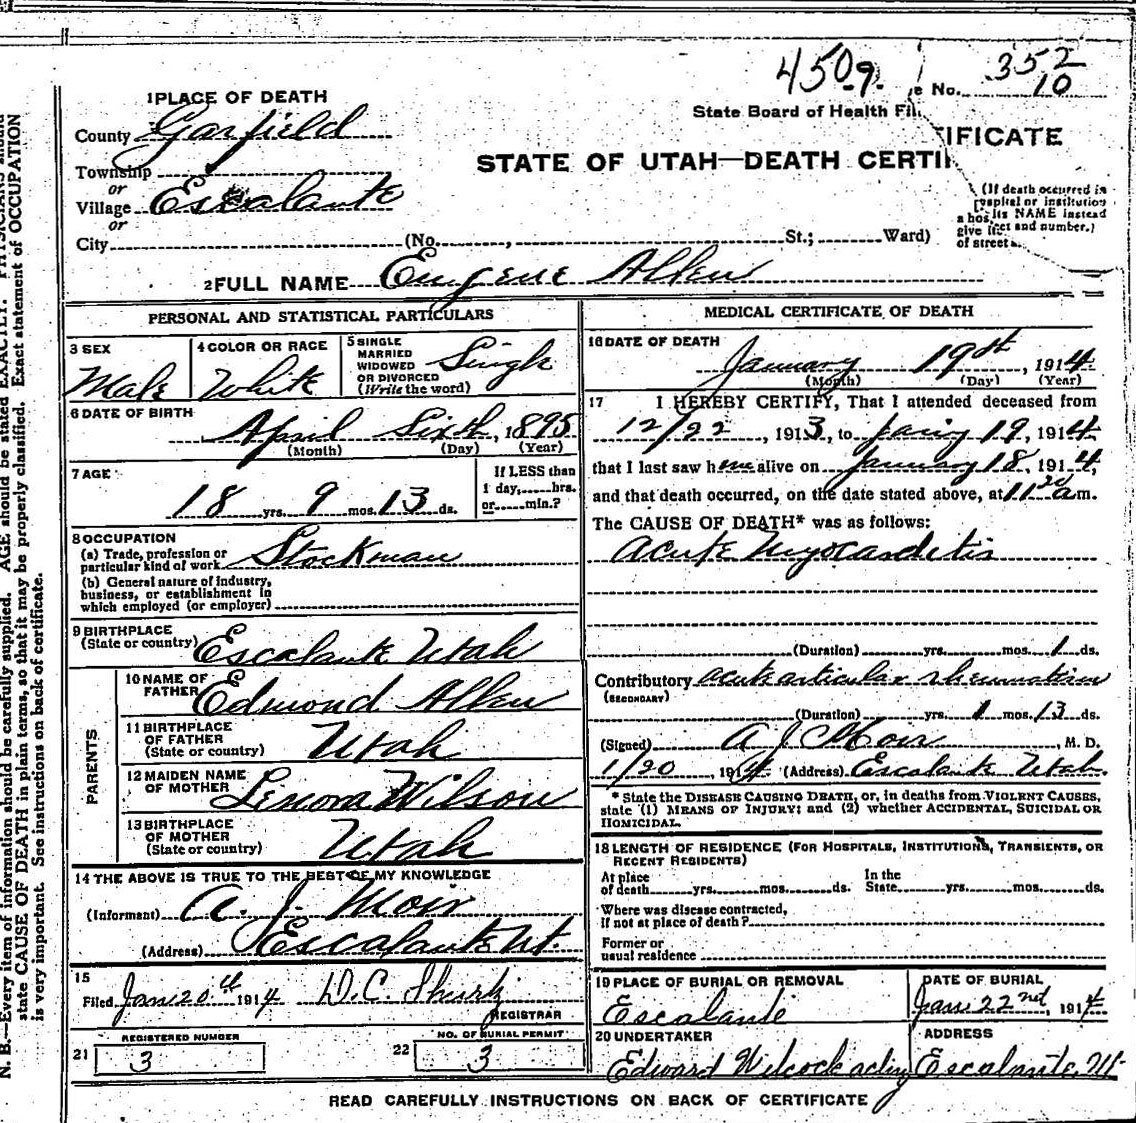 450 9. e No. 352
10
State Board of Health Fil
1 PLACE OF DEATH
County Garfield
Township
or
Village Escalante
or
City (No. , St.; Ward)
STATE OF UTAH—DEATH CERTI
IFICATE
(If death occurred in
a hospital or institution
give its NAME instead
of street and number.)
2 FULL NAME Eugene Allen
PERSONAL AND STATISTICAL PARTICULARS
3 SEX
Male
4 COLOR OR RACE
White
5 SINGLE
MARRIED
WIDOWED
OR DIVORCED
(Write the word)
Single
6 DATE OF BIRTH
April Sixth, 1895
(Month) (Day) (Year)
7 AGE
18 yrs. 9 mos. 13 ds.
If LESS than
1 day, hrs.
or min.?
8 OCCUPATION
(a) Trade, profession or
particular kind of work Stockman
(b) General nature of industry,
business, or establishment in
which employed (or employer)
9 BIRTHPLACE
(State or country) Escalante Utah
PARENTS
10 NAME OF
FATHER Edmond Allen
11 BIRTHPLACE
OF FATHER
(State or country) Utah
12 MAIDEN NAME
OF MOTHER Lenora Wilson
13 BIRTHPLACE
OF MOTHER
(State or country) Utah
14 THE ABOVE IS TRUE TO THE BEST OF MY KNOWLEDGE
(Informant) A. J. Moir
(Address) Escalante Ut.
15
Filed Jan 20th 1914 D.C. Shurtz
REGISTRAR
REGISTERED NUMBER
21 3
NO. OF BURIAL PERMIT
22 3
MEDICAL CERTIFICATE OF DEATH
16 DATE OF DEATH
January 19th, 1914
(Month) (Day) (Year)
17 I HEREBY CERTIFY, That I attended deceased from
12/22, 1913, to Jany 19, 1914
that I last saw him alive on January 18, 1914,
and that death occurred, on the date stated above, at 11 20 a m.
The CAUSE OF DEATH* was as follows:
Acute Myocarditis
(Duration) yrs. mos. 1 ds.
Contributory acute articular rheumatism
(SECONDARY)
(Duration) yrs. 1 mos. 13 ds.
(Signed) A J Moir, M. D.
1/20, 1914 (Address) Escalante Utah.
* State the DISEASE CAUSING DEATH, or, in deaths from VIOLENT CAUSES,
state (1) MEANS OF INJURY; and (2) whether ACCIDENTAL, SUICIDAL OR
HOMICIDAL.
18 LENGTH OF RESIDENCE (FOR HOSPITALS, INSTITUTIONS, TRANSIENTS, OR
RECENT RESIDENTS)
At place
of death yrs. mos. ds.
In the
State yrs. mos. ds.
Where was disease contracted,
if not at place of death?
Former or
usual residence
19 PLACE OF BURIAL OR REMOVAL
Escalante
DATE OF BURIAL
Jan 22nd, 1914
20 UNDERTAKER
Edward Wilcock acting
ADDRESS
Escalante, Ut
READ CAREFULLY INSTRUCTIONS ON BACK OF CERTIFICATE
N. B.—Every item of information should be carefully supplied. AGE should be stated EXACTLY. PHYSICIANS should
state CAUSE OF DEATH in plain terms, so that it may be properly classified. Exact statement of OCCUPATION
is very important. See instructions on back of certificate.